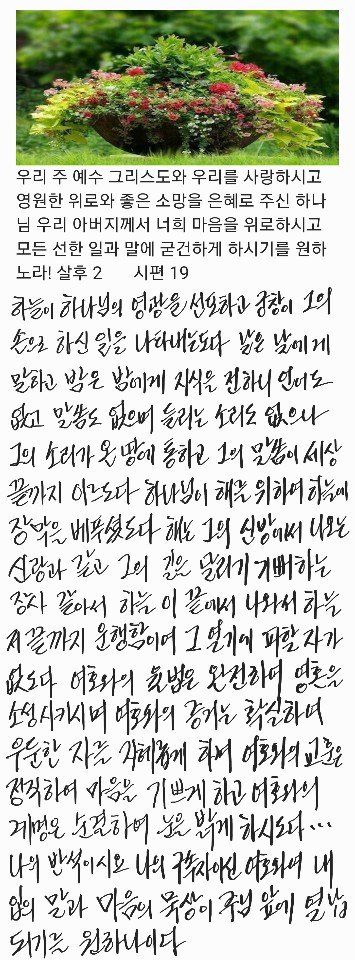 우리 주 예수 그리스도와 우리를 사랑하시고
영원한 위로와 좋은 소망을 은혜로 주신 하나
님 우리 아버지께서 너희 마음을 위로하시고
모든 선한 일과 말에 굳건하게 하시기를 원하
노라! 살후 2 시편 19
하늘이 하나님의 영광을 선포하고 궁창이 그의
손으로 하신 일을 나타내는도다 날은 날에게
말하고 밤은 밤에게 지식을 전하니 언어도
없고 말씀도 없으며 들리는 소리도 없으나
그의 소리가 온 땅에 통하고 그의 말씀이 세상
끝까지 이르도다 하나님이 해를 위하여 하늘에
장막을 베푸셨도다 해는 그의 신방에서 나오는
신랑과 같고 그의 길을 달리기 기뻐하는
장사 같아서 하늘 이 끝에서 나와서 하늘
저 끝까지 운행함이여 그 열기에 피할 자가
없도다 여호와의 율법은 완전하여 영혼을
소성시키시며 여호와의 증거는 확실하여
우둔한 자를 지혜롭게 하며 여호와의 교훈은
정직하여 마음을 기쁘게 하고 여호와의
계명은 순결하여 눈을 밝게 하시도다...
나의 반석이시요 나의 구속자이신 여호와여 내
입의 말과 마음의 묵상이 주님 앞에 열납
되기를 원하나이다